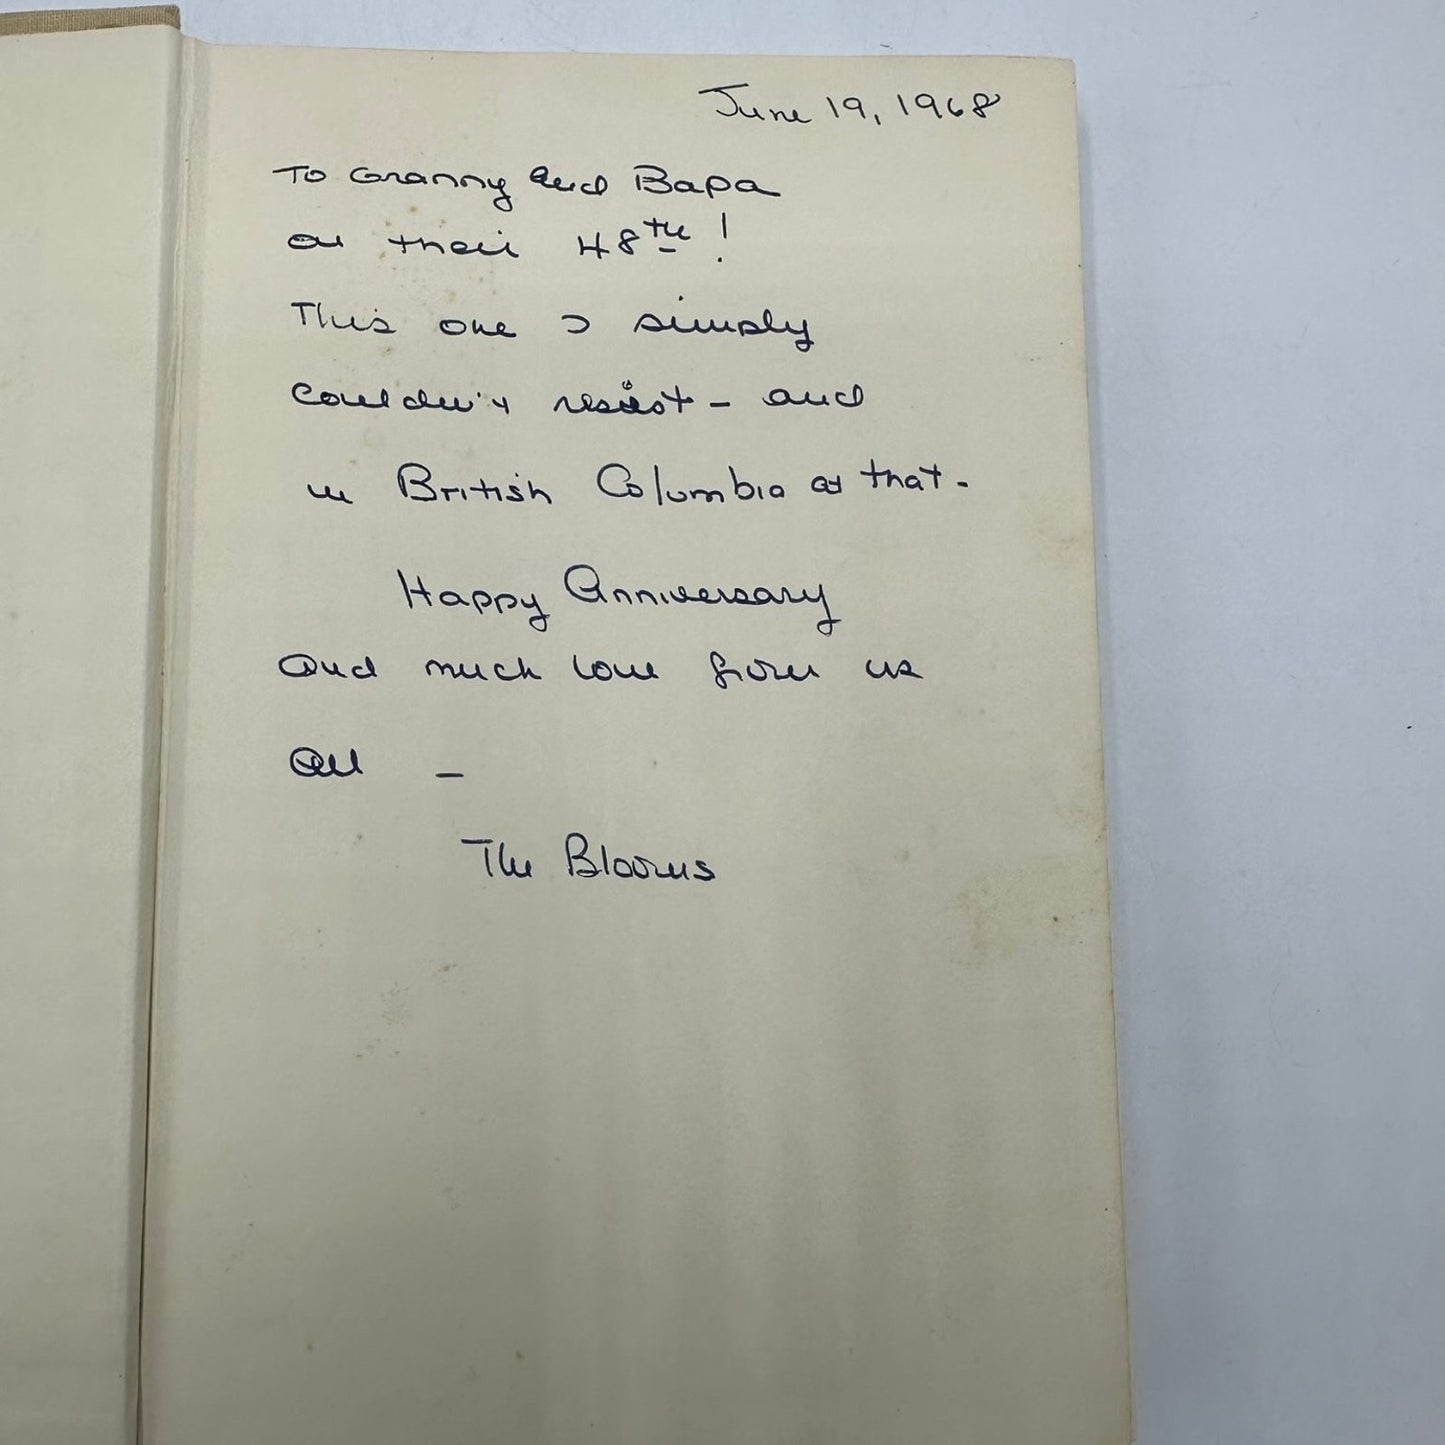 June 19, 1968
To Granny and Bapa
on their 48th!
This one I simply
couldn't resist - and
in British Columbia at that -
Happy Anniversary
and much love from us
all -
The Blooms